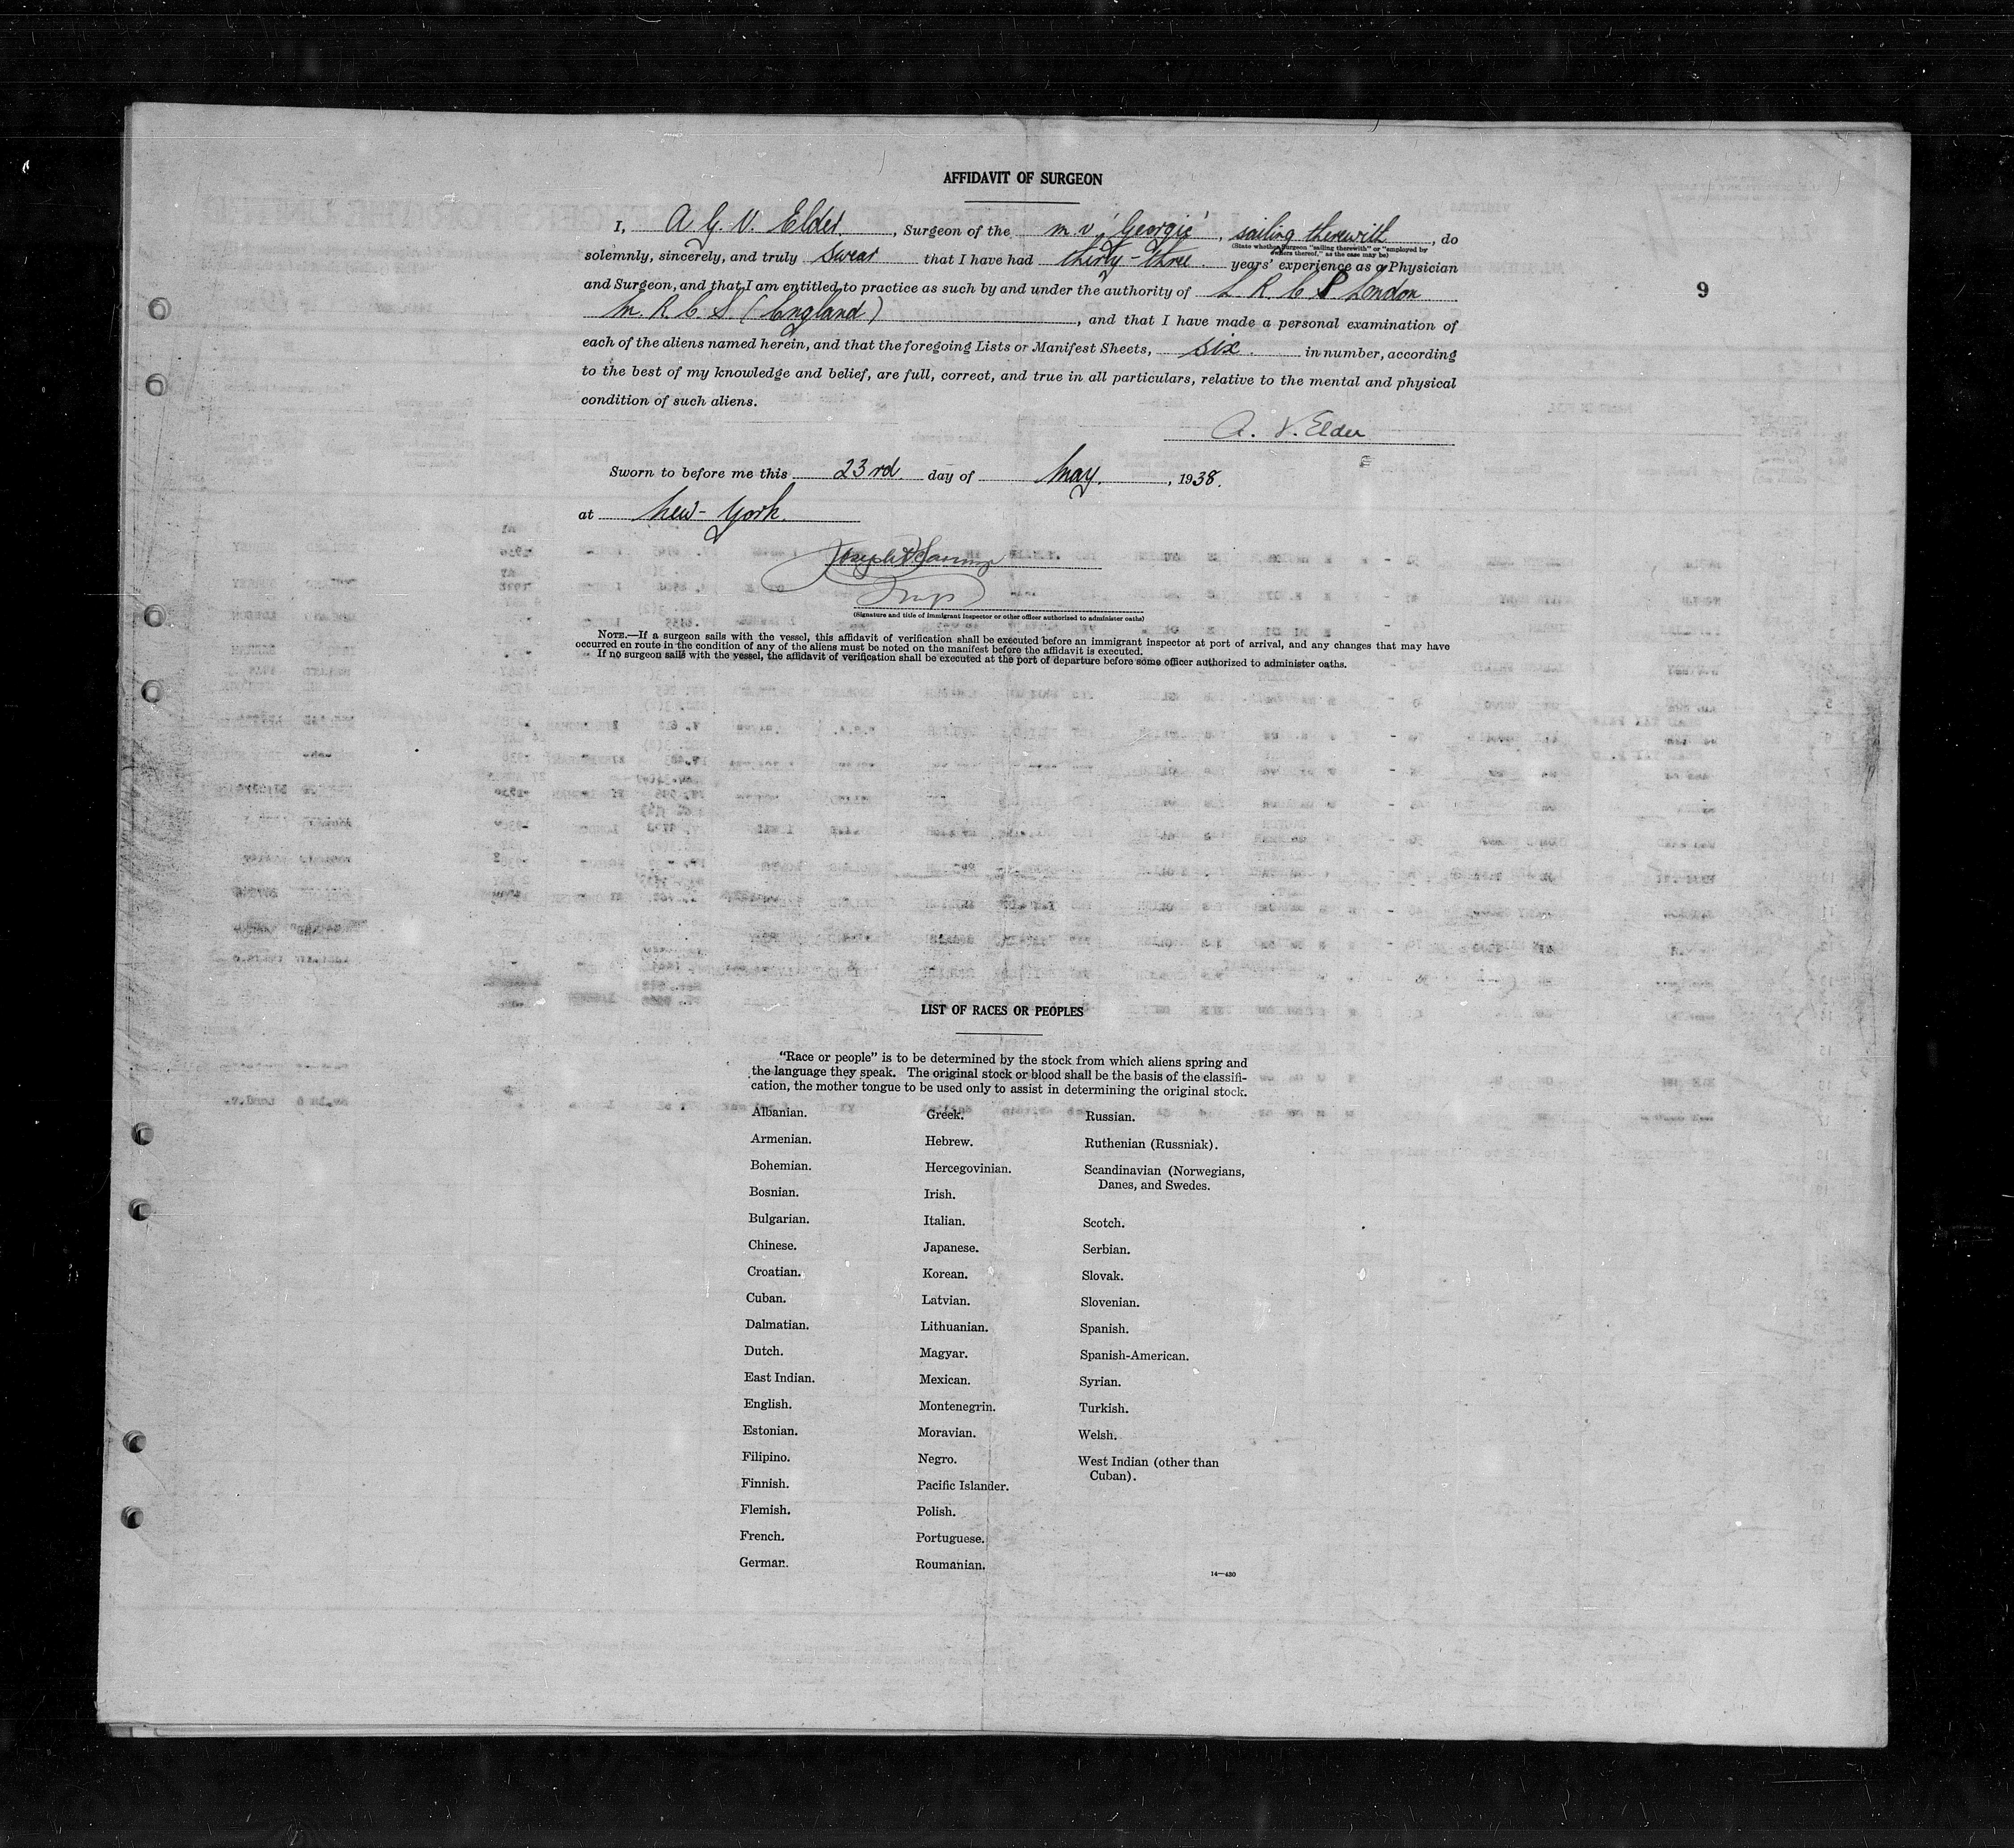 AFFIDAVIT OF SURGEON
I, A. G. V. Elder, Surgeon of the m v 'Georgic', sailing therewith, do
(State whether Surgeon "sailing therewith" or "employed by
owners thereof," as the case may be)
solemnly, sincerely, and truly swear that I have had thirty-three years' experience as a Physician
and Surgeon, and that I am entitled to practice as such by and under the authority of L. R. C. P London
M. R. C. S. (England), and that I have made a personal examination of
each of the aliens named herein, and that the foregoing Lists or Manifest Sheets, six. in number, according
to the best of my knowledge and belief, are full, correct, and true in all particulars, relative to the mental and physical
condition of such aliens.
9
A. V. Elder
Sworn to before me this 23rd day of May, 1938.
at New-York.
Joseph
(Signature and title of immigrant inspector or other officer authorized to administer oaths)
NOTE.—If a surgeon sails with the vessel, this affidavit of verification shall be executed before an immigrant inspector at port of arrival, and any changes that may have
occurred en route in the condition of any of the aliens must be noted on the manifest before the affidavit is executed.
If no surgeon sails with the vessel, the affidavit of verification shall be executed at the port of departure before some officer authorized to administer oaths.
LIST OF RACES OR PEOPLES
"Race or people" is to be determined by the stock from which aliens spring and
the language they speak. The original stock or blood shall be the basis of the classifi-
cation, the mother tongue to be used only to assist in determining the original stock.
Albanian.
Armenian.
Bohemian.
Bosnian.
Bulgarian.
Chinese.
Croatian.
Cuban.
Dalmatian.
Dutch.
East Indian.
English.
Estonian.
Filipino.
Finnish.
Flemish.
French.
German.
Greek.
Hebrew.
Hercegovinian.
Irish.
Italian.
Japanese.
Korean.
Latvian.
Lithuanian.
Magyar.
Mexican.
Montenegrin.
Moravian.
Negro.
Pacific Islander.
Polish.
Portuguese.
Roumanian.
Russian.
Ruthenian (Russniak).
Scandinavian (Norwegians,
Danes, and Swedes.
Scotch.
Serbian.
Slovak.
Slovenian.
Spanish.
Spanish-American.
Syrian.
Turkish.
Welsh.
West Indian (other than
Cuban).
14—430